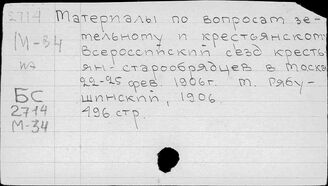 2714 Материалы по вопросам зе-
М-34 мельному и крестьянском
Всероссийский съезд кресть
ян-старообрядцев в Москв
22-25 фев. 1906г. М. Рябу-
БС шинский, 1906.
2714 496 стр.
М-34